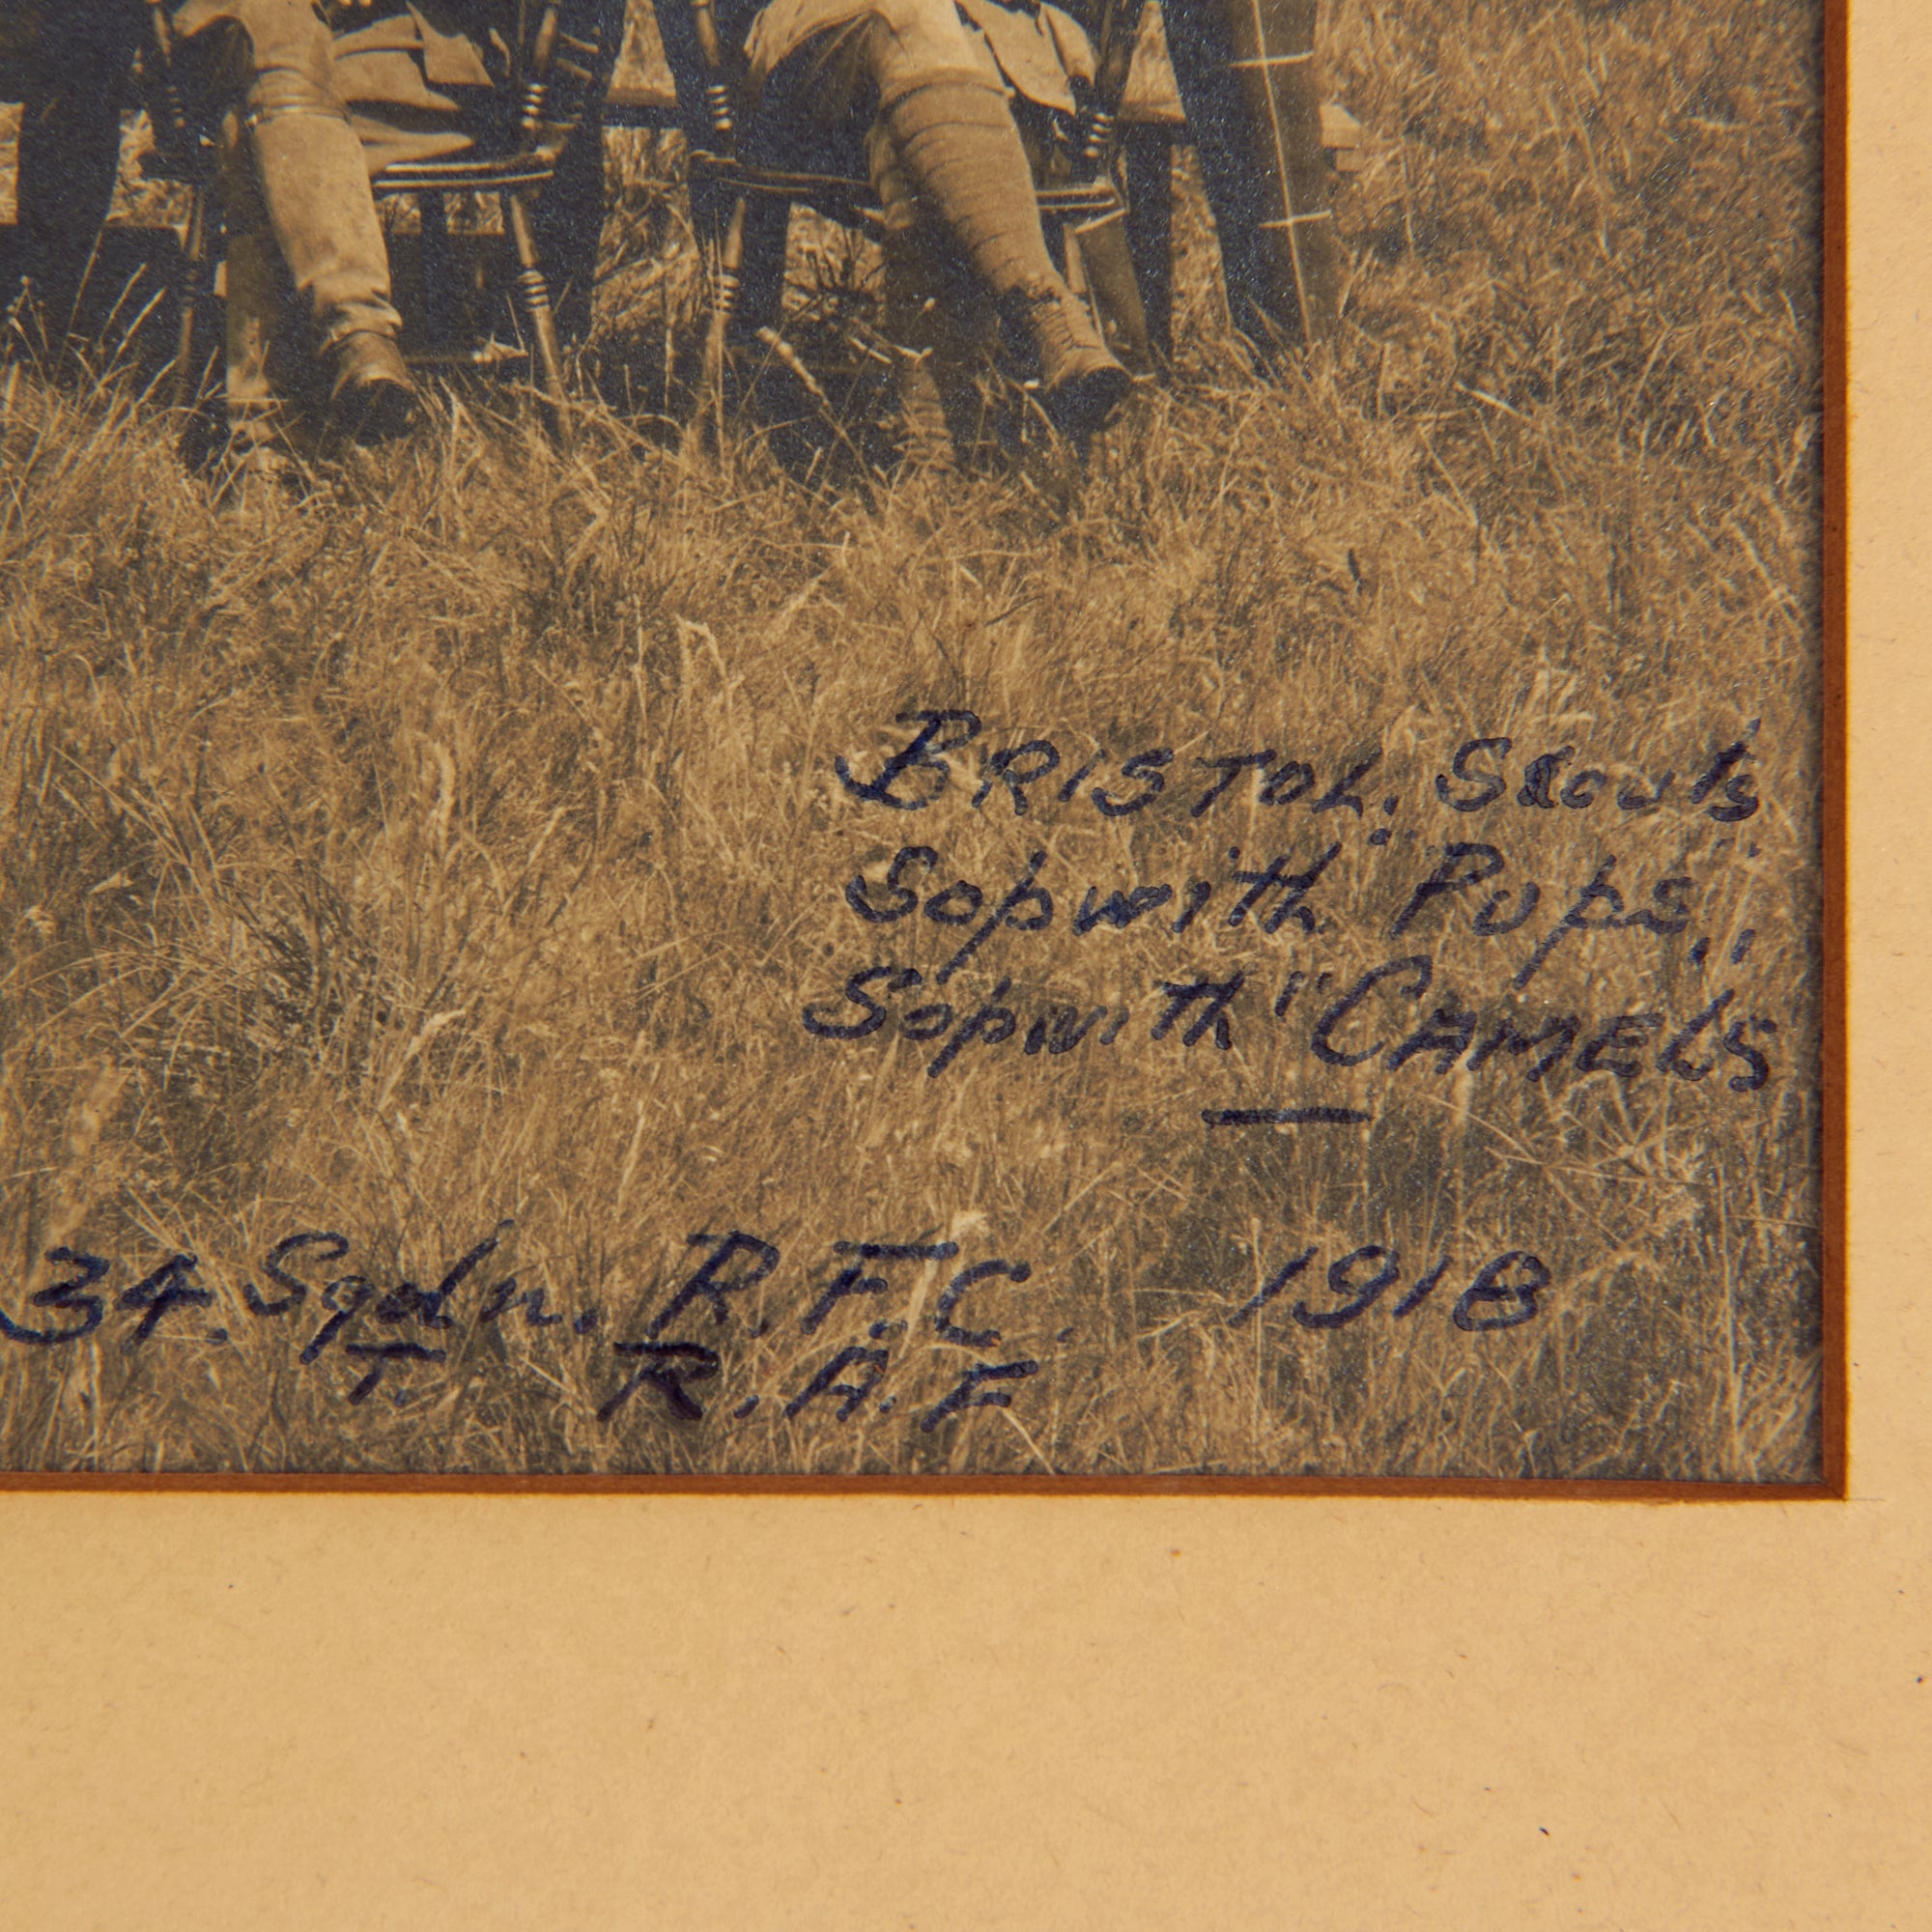 BRISTOL. Scouts
Sopwith "Pups"
Sopwith "CAMELS
34. Sqdn. R.F.C. 1918
T. R.A.F